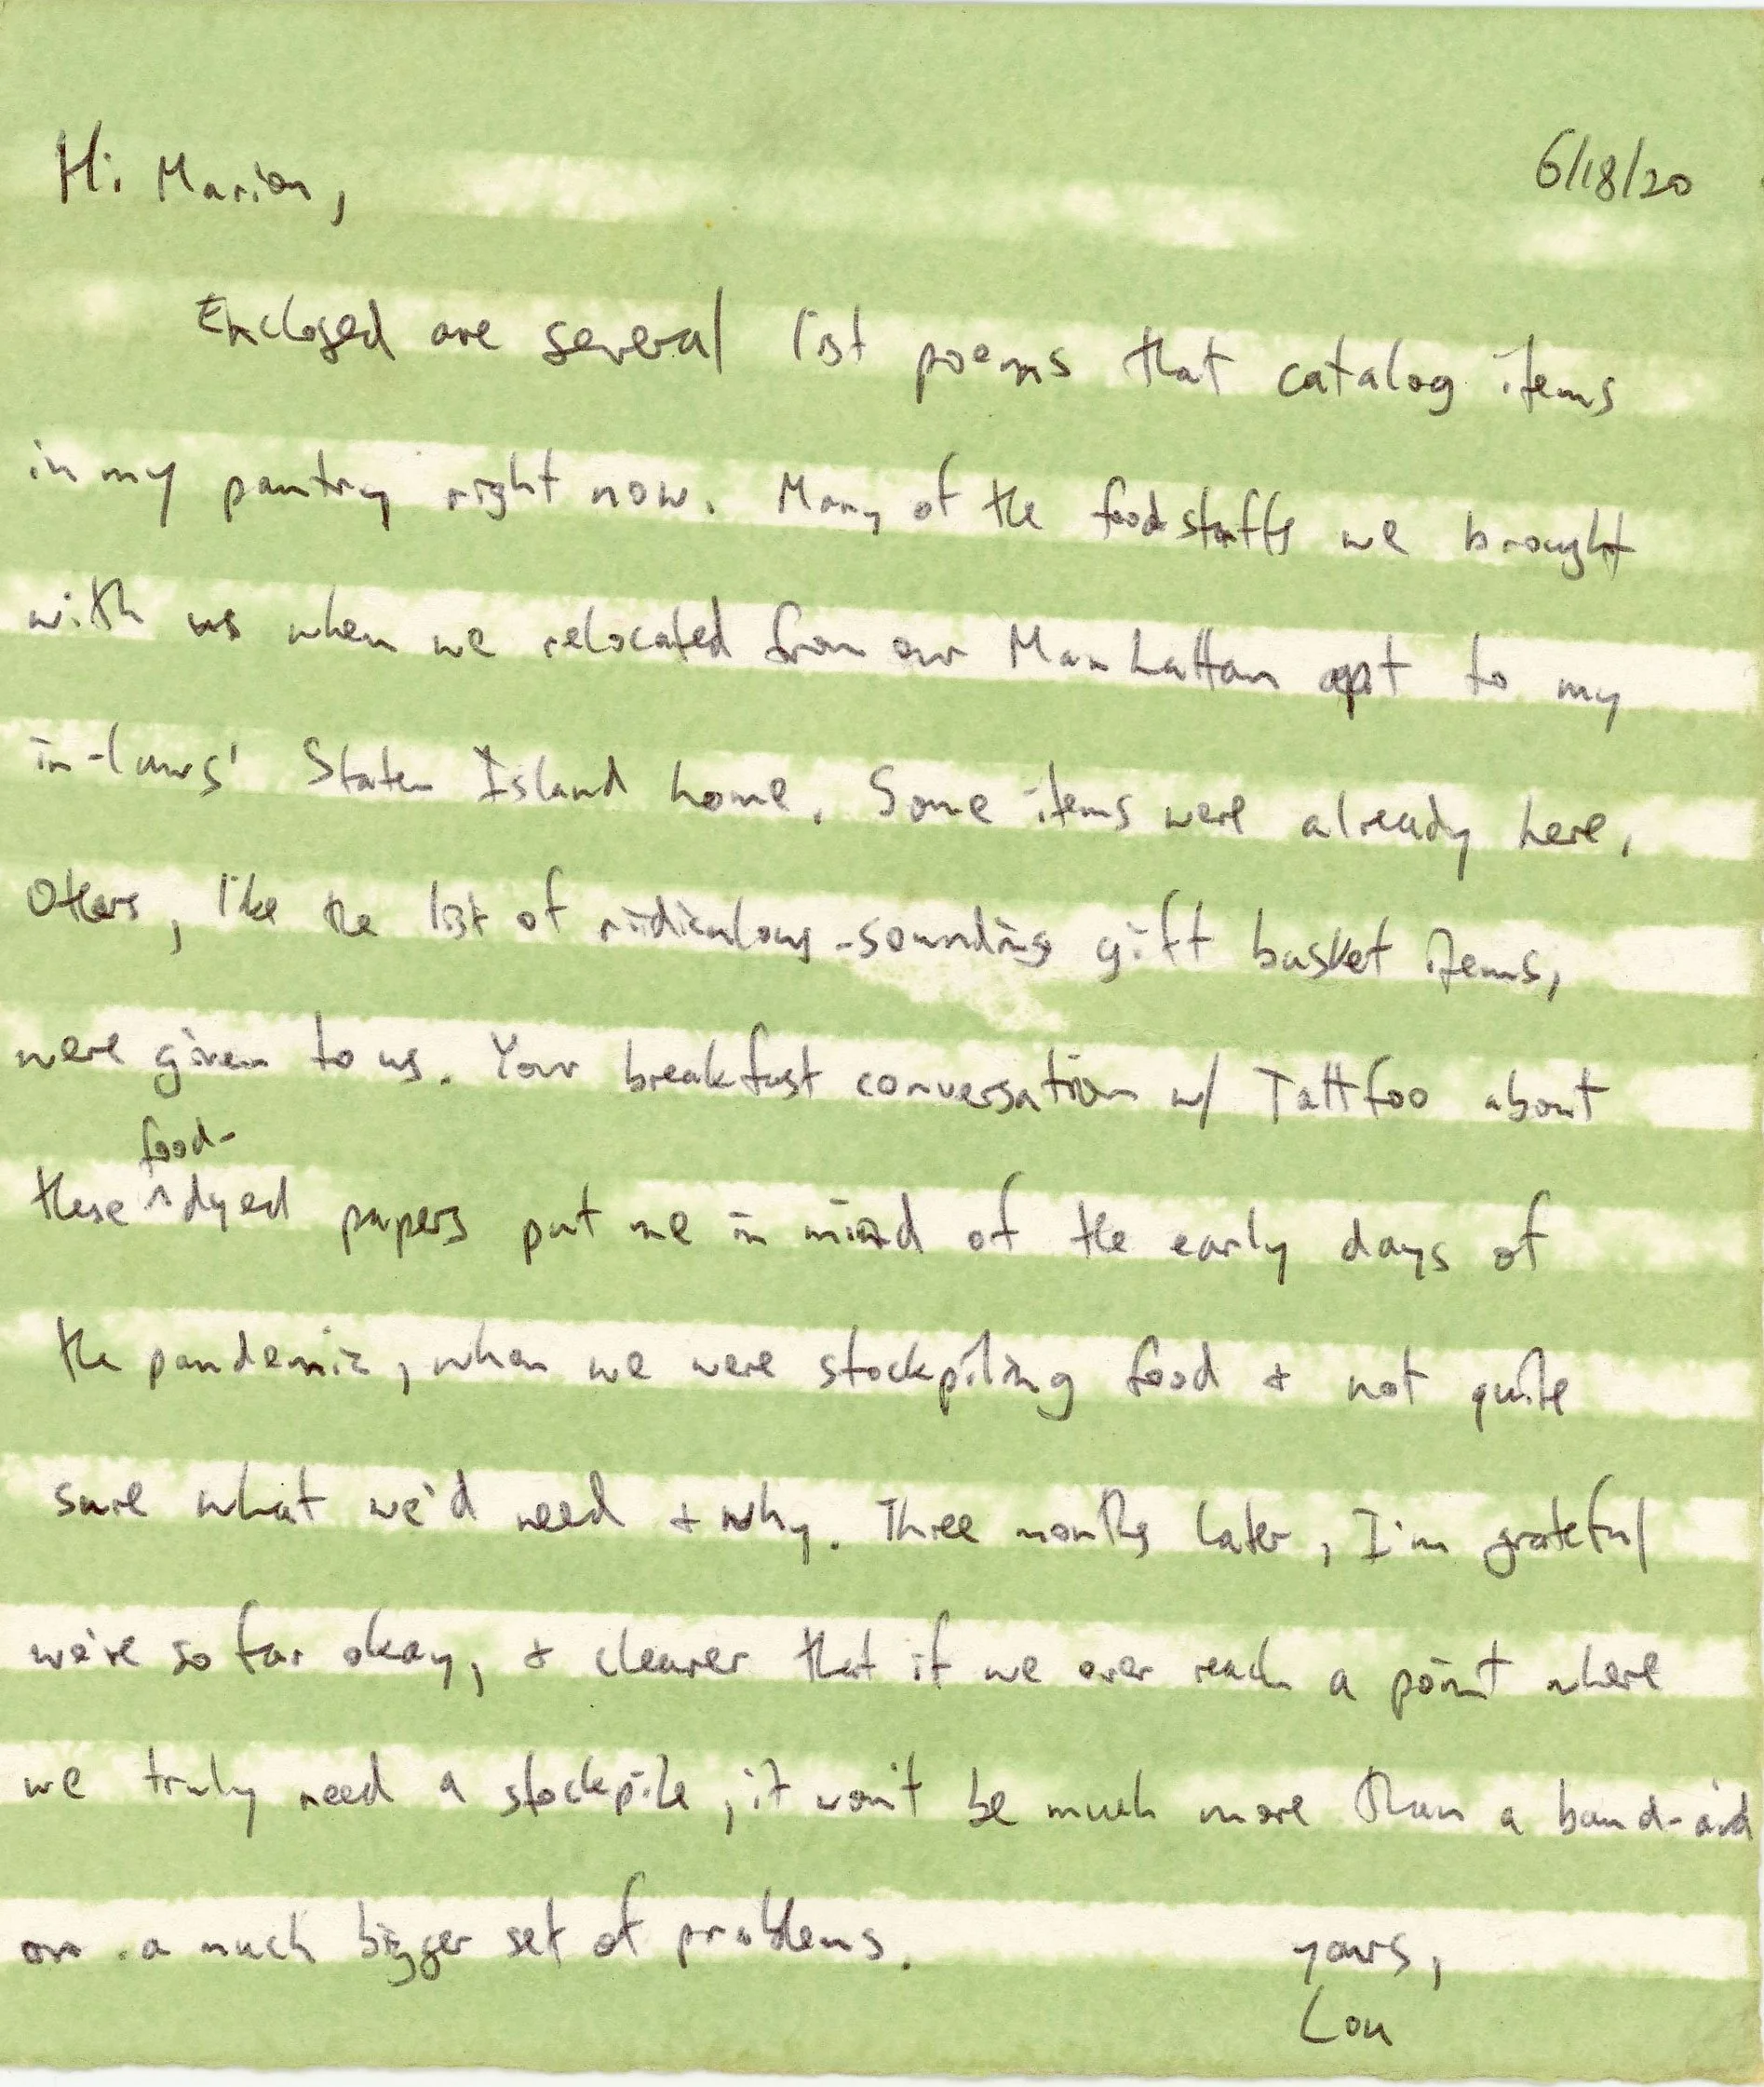 Hi Marion,
6/18/20
Enclosed are several list poems that catalog items
in my pantry right now. Many of the foodstuffs we brought
with us when we relocated from our Manhattan apt to my
in-laws' Staten Island home. Some items were already here.
Others, like the list of ridiculous-sounding gift basket items,
were given to us. Your breakfast conversation w/ Tattfoo about
food-
these ^ dyed papers put me in mind of the early days of
the pandemic, when we were stockpiling food & not quite
sure what we'd need & why. Three months later, I'm grateful
we're so far okay, & clearer that if we ever reach a point where
we truly need a stockpile, it won't be much more than a band-aid
on a much bigger set of problems.
yours,
Lou